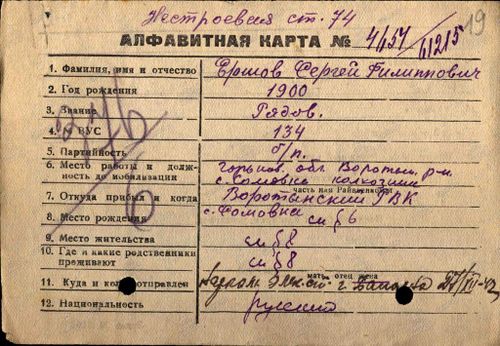 Нестроевая ст. 74
19
АЛФАВИТНАЯ КАРТА № 4/457
41215
1. Фамилия, имя и отчество Ершов Сергей Филиппович
2. Год рождения 1900
3. Звание Рядов.
4. № ВУС 134
5. Партийность б/п.
6. Место работы и долж- горьков. обл. Воротын. р-н
ность до мобилизации с. Фомовка колхозник
часть или Райвоенкомат
7. Откуда прибыл и когда Воротынский РВК
8. Место рождения с. Фомовка см § 6
9. Место жительства см § 8
10. Где и какие родственники
проживают см § 8
мать отец жена
11. Куда и когда отправлен
12. Национальность русский